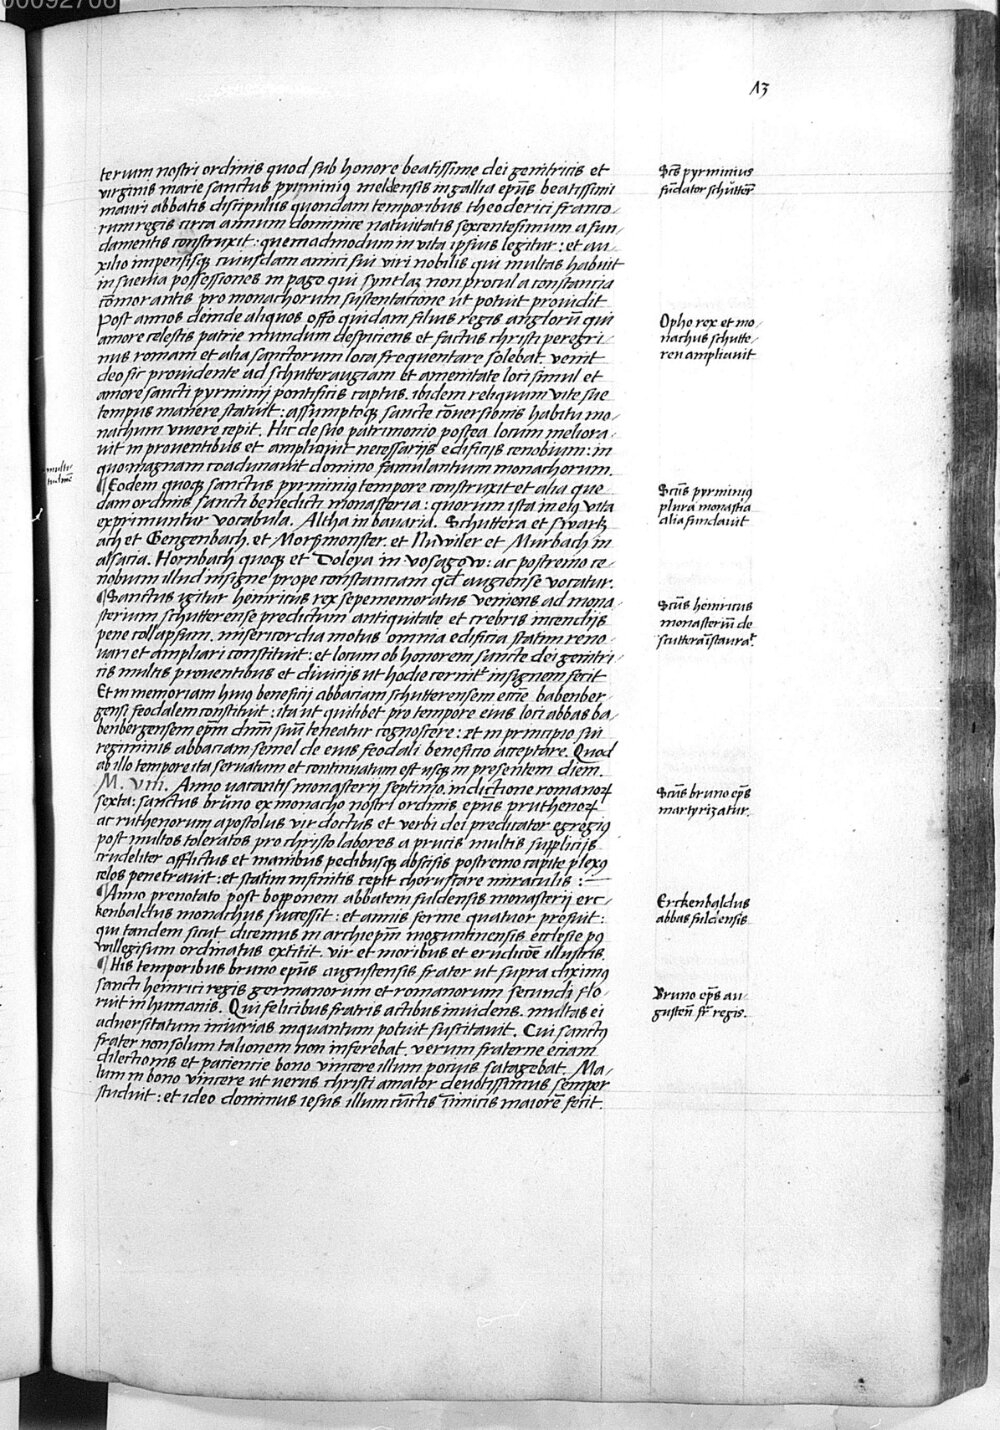 00092706
13
terium nostri ordinis quod sub honore beatissime dei genitricis et
virginis marie sanctus pyrminiꝰ meldensis in gallia epūs beatissimi
mauri abbatis discipulus quondam temporibus theoderici franco/
rum regis circa annum dominice natiuitatis sexcentesimum a fun/
damentis construxit: quemadmodum in vita ipsius legitur: et au/
xilio impensisqꝫ cuiusdam amici sui viri nobilis qui multas habuit
in suevia possessiones in pago qui syntlaꝫ non procul a constancia
cōmorantis pro monachorum sustentacione ut potuit prouidit
Post annos deinde aliquos offo quidam filius regis anglorū qui
amore celestis patrie mundum despiciens et factus christi peregri/
nus romam et alia sanctorum loca frequentare solebat. venit
deo sic prouidente ad schutteraugiam Et amenitate loci simul et
amore sancti pyrminij pontificis captus. ibidem reliquum vite sue
tempus manere statuit: assumptoqꝫ sancte cōuersionis habitu mo/
nachum viuere cepit. Hic de suo patrimonio postea locum meliora/
uit in prouentibus et ampliauit necessarijs edificijs cenobium: in
quo magnam coadunauit domino famulantium monachorum.
¶Eodem quoqꝫ sanctus pyrminiꝰ tempore construxit et alia que
dam ordinis sancti benedicti monasteria: quorum ista in eiꝰ vita
exprimuntur vocabula. Altha in bauaria. Schuttera et Swartz
ach et Gengenbach. et Morszmonster. et Nuwiler et Murbach in
alsacia. Hornbach quoqꝫ et Doleya in vosagow: ac postremo ce/
nobium illud insigne prope constanciam qd augiense vocatur.
¶Sanctus igitur heinricus rex sepememoratus veniens ad mona/
sterium schutterense predictum antiquitate et crebris incendijs
pene collapsum. misericordia motus omnia edificia statim reno
uari et ampliari constituit: et locum ob honorem sancte dei genitri/
cis multis prouentibus et diuicijs ut hodie cernitʳ insignem fecit
Et in memoriam huiꝰ beneficij abbaciam schutterensem ecc̄ie babenber/
gensi feodalem constituit: ita ut quilibet pro tempore eius loci abbas ba/
benbergensem ep̄m dn̄m suū teneatur cognoscere: et in principio sui
regiminis abbaciam semel de eius feodali beneficio acceptare. Quod
ab illo tempore ita seruatum et continuatum est usqꝫ in presentem diem.
M. viii. Anno vacantis monasterij septimo. indictione romanoꝝ
sexta: sanctus bruno ex monacho nostri ordinis epūs pruthenoꝝ
ac ruthenorum apostolus vir doctus et verbi dei predicator egregiꝰ
post multos toleratos pro christo labores a prucis multis supplicijs
crudeliter afflictus et manibus pedibusqꝫ abscisis postremo capite plexꝰ
celos penetrauit: et statim infinitis cepit choruscare miraculis :—
¶Anno prenotato post bopponem abbatem fuldensis monasterij erc/
kenbaldus monachus successit: et annis ferme quatuor prefuit:
qui tandem sicut dicemus in archiep̄m moguntinensis ecclesie pꝰ
willegisum ordinatus extitit. vir et moribus et erudicōe illustris.
¶His temporibus bruno epūs augustensis frater ut supra diximꝰ
sancti heinrici regis germanorum et romanorum secundi flo/
ruit in humanis. Qui felicibus fratris actibus inuidens. multas ei
aduersitatum iniurias inquantum potuit suscitauit. Cui sanctꝰ
frater non solum talionem non inferebat. verum fraterne eciam
dilectionis et paciencie bono vincere illum pocius satagebat. Ma/
lum in bono vincere ut uerus christi amator deuotissimus semper
studuit: et ideo dominus iesus illum cūctis īimicis maiorē fecit.
multi/
tudinē
Scūs pyrminius
fūdator schuttern̄
Opho rex et mo/
nachus schutte/
ren ampliauit
Scūs pyrminiꝰ
plura monastia
alia fundauit
Scūs heinricus
monasteriū de
scuttera īstauraṫ.
Scūs bruno ep̄s
martyrizatur.
Erckenbaldus
abbas fuldensis
Bruno ep̄s au/
gusteñ. fr̄ regis.